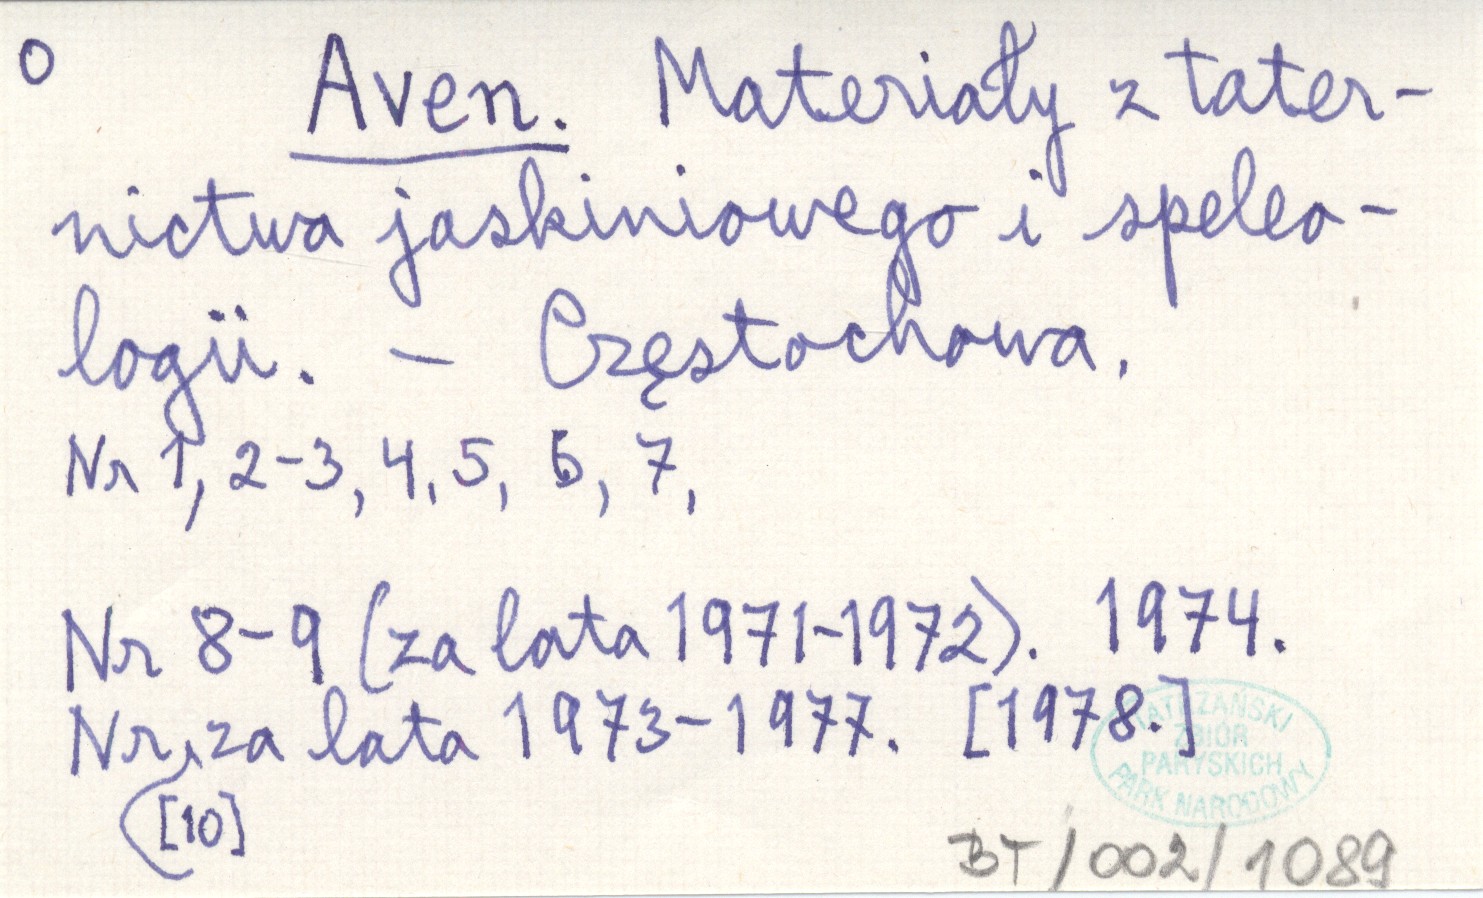 O
Aven. Materiały z tater-
nictwa jaskiniowego i speleo-
logii. – Częstochowa.
Nr 1, 2-3, 4, 5, 6, 7,
Nr 8-9 (za lata 1971-1972). 1974.
Nr, za lata 1973-1977. [1978.]
[10]
TATRZAŃSKI
ZBIÓR
PARYSKICH
PARK NARODOWY
BT/002/1089